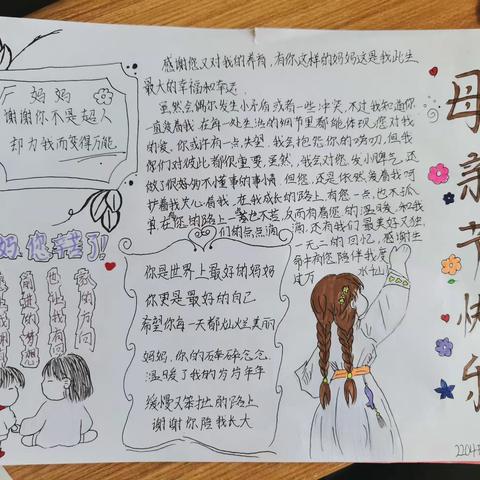 妈妈
谢谢你不是超人
却为我而变得万能
妈,您辛苦了!
感谢您又对我的养育,有你这样的妈妈这是我此生
最大的幸福和幸运
虽然会偶尔发生小矛盾或者一些冲突,不过我知道你
一直爱着我,在每一处生活的细节里都能体现您对我
的爱,你或许有一点失望,我会抱怨你的唠叨,但我
们们对彼此都很重要,虽然,我会对您发小脾气,还
做了很多幼不懂事的事情,但您,还是依然爱着我呵
护着我关心着我,在我成长的路上,有您一点,也不孤
单,在您的路上一 也不苦,反而有着您的温暖,和我
们的点点滴滴,还有我们最美好又独
一无二的回忆,感谢生
命中有您陪伴我度
过万 水千山
你是世界上最好的妈妈
你更是最好的自己
希望你每一天都灿烂美丽
妈妈,你的碎碎念念
温暖了我的岁岁年年
缓慢又笨拙的路上
谢谢你陪我长大
母亲节快乐
家的方向
也让我有
前进的梦想
2204